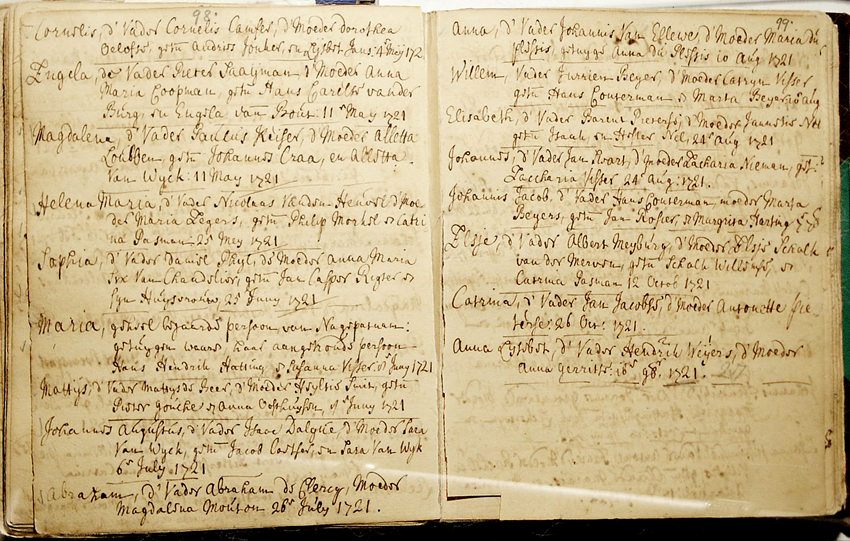 98.
Cornelis, d' Vader Cornelis Campher, d' Moeder Dorothea
Oelofse, getn Andries Jonker, en Lijsbet Jans: 4 Meij 172
Engela, de Vader Pieter Saaijman, d' Moeder Anna
Maria Coopman, getn Hans Carelse vander
Burg, en Engela van Bout: 11 Maij 1721
Magdalena d' Vader Paulus Keijser, d' Moeder Alletta
getn Johannes Craa, en Aletta
Van Wyck: 11 Maij 1721
Helena Maria, d' Vader Nicolaas Van den Heuvel d' Moe
der Maria Zegers, getn Philip Morkel en Catri
na Pasman 25 Meij 1721
Sophia, d' Vader Daniel, de Moeder Anna Maria
Six Van Chandelier, getn Jan Casper Rigter en
syn Huysvrouw, 25 Juny 1721
Maria, geheel bejaarde persoon van Nagapatnam:
getuygen waaren haar aangetroude persoon
Hans Hendrik Hatting en Susanna Visser. Juny 1721
Mattijs, d' Vader Mattys de Beer, d' Moeder Hyltie Smit, getn
Pieter en Anna Oosthuysen, Juny 1721
Johannes Augustus, d' Vader Isaac Dalgue, d' Moeder Sara
Van Wyck, getn Jacob Coetser, en Sara Van Wyk
6 July 1721
Abraham, d' Vader Abraham de Clercq, Moeder
Magdalena Mouton 26 July 1721.
99.
Anna, d' Vader Johannis Van Ellewe, d' Moeder Maria du
Plessis getuyge Anna du Plessis 10 Aug 1721
Willem, Vader Jurrien Beyer, d' Moeder Catryn Visser
getn Hans Conterman en Marta Beyers 10 Aug
Elisabeth, d' Vader Barent Pieterse, d' Moeder Jannetie Nel
getn Isaak en Hester Nel, 24 Aug 1721
Johannes, d' Vader Jan Swart, d' Moeder Zacharia Nieman, get:
Zaccharia Visser 24 Aug: 1721.
Johannes Jacob. d' Vader Hans Conterman moeder Marta
Beyers, getn Jan Rosser, en Margrita Harting 7 7b
Elsje, d' Vader Albert Meyburg, d' Moeder Elsie Schalk
van der Merven, getn Schalk Willemse, en
Catrina Pasman 12 Octob 1721
Catrina, d' Vader Jan Jacobse, d' Moeder Antonette Pie
terse. 26 Oct. 1721.
Anna Lijsbet, d' Vader Hendrik Weyers, d' Moeder
Anna Gerritse. 16 9b. 1721.